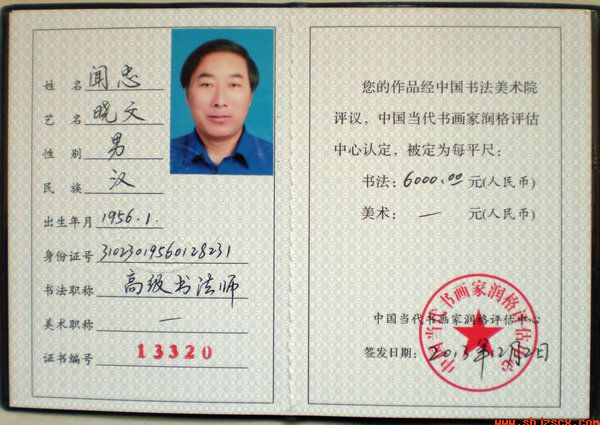 姓名 闻忠
艺名 晓文
性别 男
民族 汉
出生年月 1956.1.
身份证号 31023019560128231
书法职称 高级书法师
美术职称 一
证书编号 13320
您的作品经中国书法美术院
评议，中国当代书画家润格评估
中心认定，被定为每平尺：
书法：6000.00 元(人民币)
美术：一 元(人民币)
中国当代书画家润格评估中心
中国当代书画家润格评估中心
签发日期：2013年12月2日
www.shjzscx.com